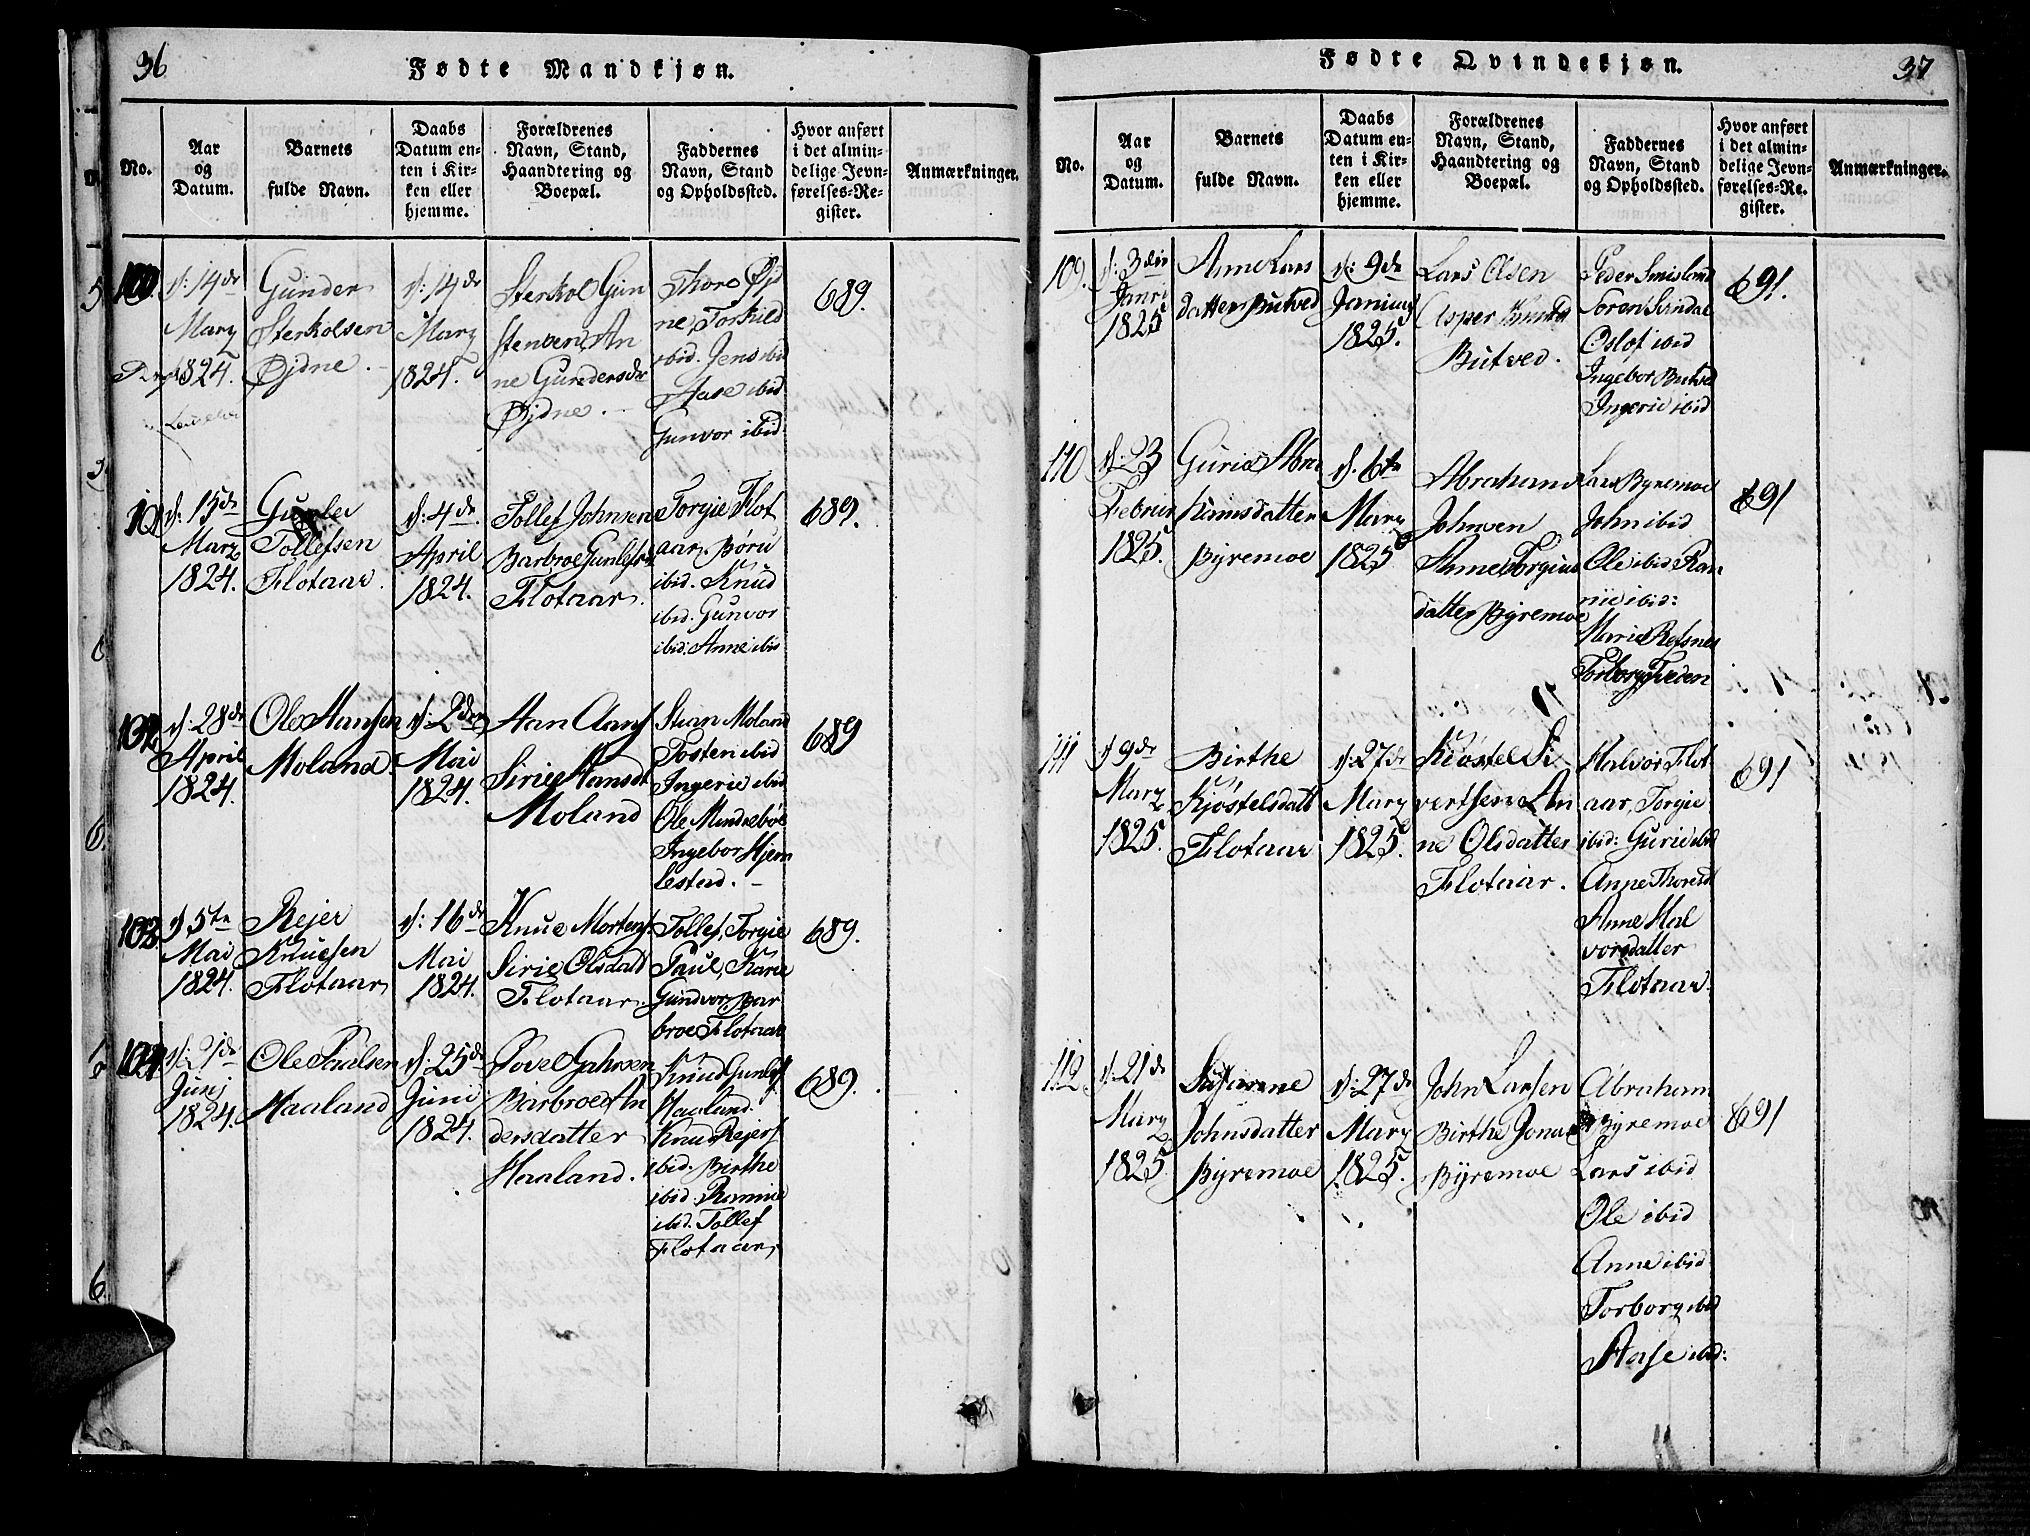 36
Fødte Mandkjøn.
No.
Aar
og
Datum.
Barnets
fulde Navn.
Daabs
Datum en-
ten i Kir-
ken eller
hjemme.
Forældrenes
Navn, Stand,
Haandtering og
Boepæl.
Faddernes
Navn, Stand
og Opholdssted.
Hvor anført
i det almin-
delige Jevn-
førelses-Re-
gister.
Anmærkninger.
100.
d: 14de
Marz
1824.
Gunder
Sterkolsen
Øjdne.
d: 14de
Marz
1824.
Sterkol Gun
stensen, An
ne Gundersdr
Øjdne.
Thore Øjd
ne, Torkild
ibid. Jens ibid
Aase ibid
Gunvor ibid.
689.
101
d: 15de
Marz
1824.
Gunlev
Tollefsen
Flotaar.
d: 4de
April
1824.
Tollef Johnsen
Barbroe Gunlefsd
Flotaar.
Torgie Flot
aar. Børu
ibid. Knud
ibid. Gunvor
ibid. Anne ibid
689.
102
d: 28de
April
1824.
Ole Hansen
Moland.
d: 2den
Mai
1824.
Han Aanf
Sirie Hansdt
Moland
Stian Moland
Tosten ibid
Ingerie ibid
Ole Mindrebøe
Ingebor Hjem
lestad.
689
103
d 5te
Mai
1824.
Rejer
Knudsen
Flotaar
d: 16de
Mai
1824.
Knud Mortens.
Sirie Olsdatt
Flotaar.
Tollef, Torgie
Paul, Karie
Gundvor, Bar
broe Flotaar
689.
104
d: 21de
Junj
1824.
Ole Paulsen
Haaland
d: 25de
Junii
1824.
Povel Jahnsen
Barbroe An
dersdatter
Haaland.
Knud Gunlefs
Haaland.
Knud Rejers
ibid. Birthe
ibid. Rannie
ibid. Tollef
Flotaar,
689.
Fødte Qvindekjøn.
37
No.
Aar
og
Datum.
Barnets
fulde Navn.
Daabs
Datum en-
ten i Kir-
ken eller
hjemme.
Forældrenes
Navn, Stand,
Haandtering og
Boepæl.
Faddernes
Navn, Stand
og Opholdssted.
Hvor anført
i det almin-
delige Jevn-
førelses-Re-
gister.
Anmærkninger.
109.
d: 3die
Janri
1825
Anne Lars
datter Butved
d: 9de
Januar
1825.
Lars Olsen
Asper
Butved.
Peder Smisland
Soren Svindal
Oslof ibid
Ingebor Butved
Ingerie ibid
691.
110
d: 23
Februr
1825.
Gurie Abra
hamsdatter
Byremoe
d. 6te
Marz
1825
Abraham
Johnsen
Anne Torgius
datter Byremoe
Lars Byremoe
John ibid
Ole ibid Ran
nie ibid:
Marie Refsnes
Torborg Tveden
691
111
d 9de
Marz
1825.
Birthe
Kjøstelsdatt
Flotaar
d: 27de
Marz
1825.
Kiøstel Si
verthsen An
ne Olsdatter
Flotaar.
Halvor Flot
aar, Torgie
ibid: Gurie ibid
Anne Thoresd
Anne Hal
vorsdatter
Flotaar.
691
112
d: 21de
Marz
1825.
Susanne
Johnsdatter
Byremoe
d: 27de
Marz
1825.
John Larsen
Birthe Jona
Byremoe
Abraham
Byremoe
Lars ibid
Ole ibid
Anne ibid
Torborg ibid
Aase ibid:
691